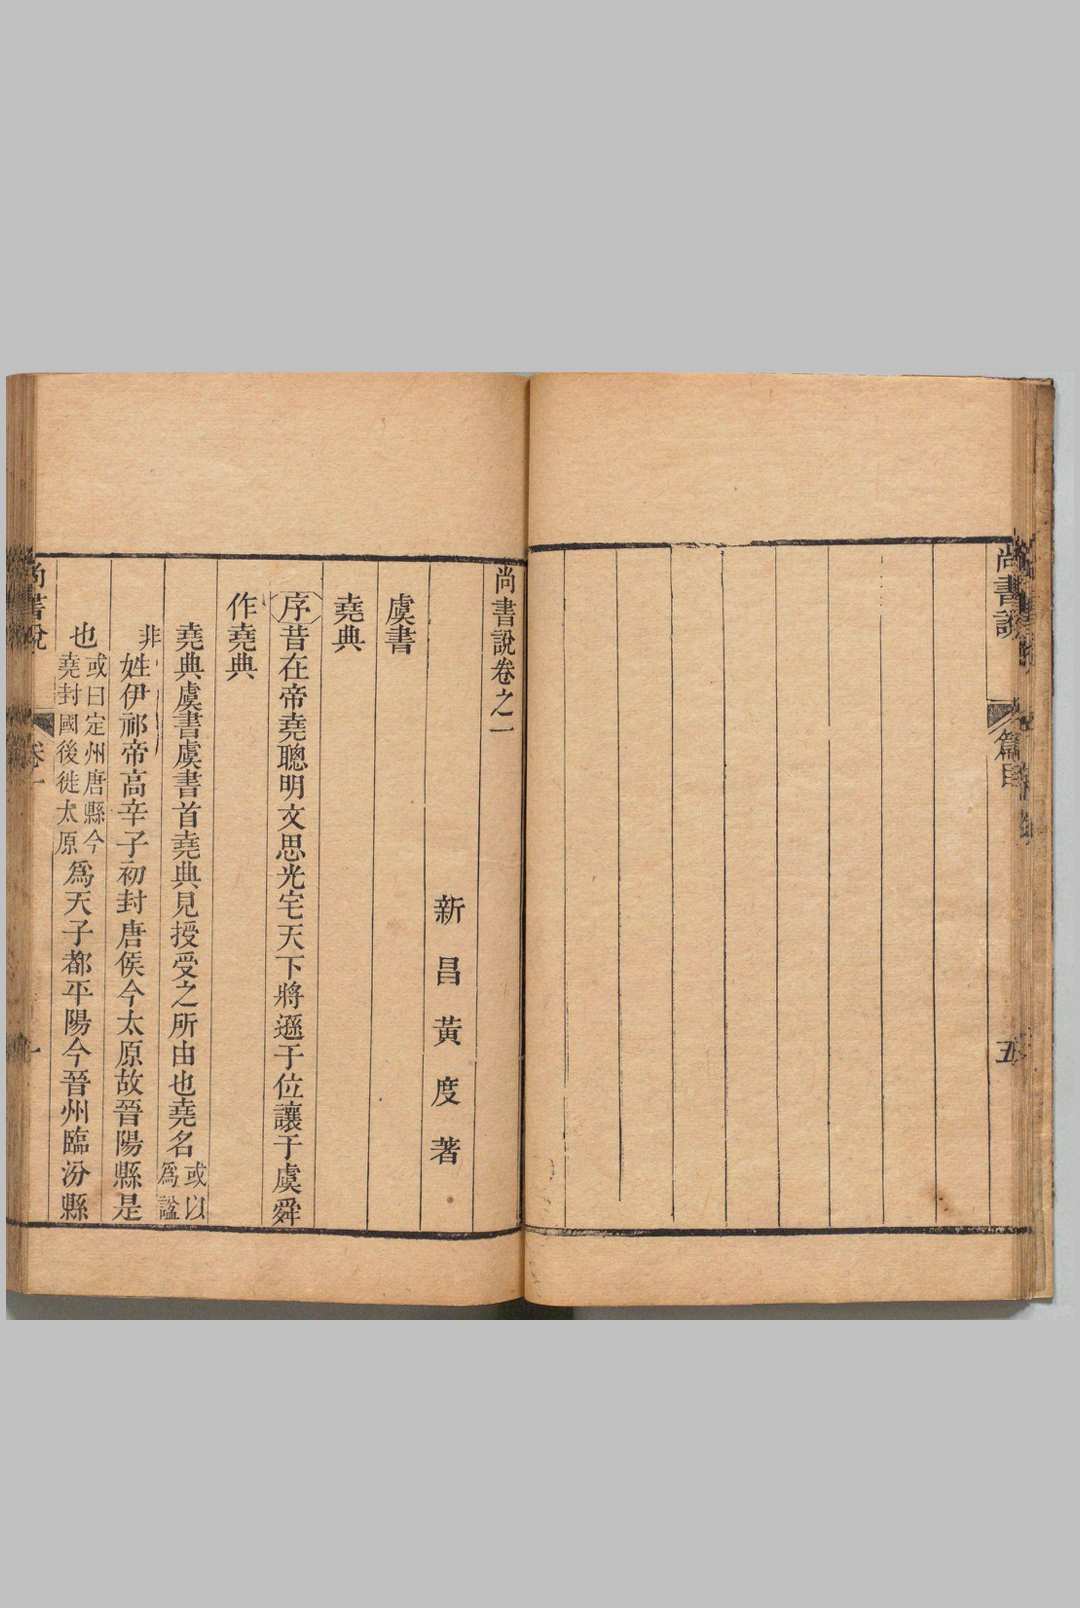 尚書說
篇目
五
尚書說卷之一
新昌黃度著
虞書
堯典
序昔在帝堯聰明文思光宅天下將遜于位讓于虞舜
作堯典
堯典虞書虞書首堯典見授受之所由也堯名或以為諡
非姓伊祁帝高辛子初封唐侯今太原故晉陽縣是
也或曰定州唐縣今堯封國後徙太原爲天子都平陽今晉州臨汾縣
尚書說
卷一
一